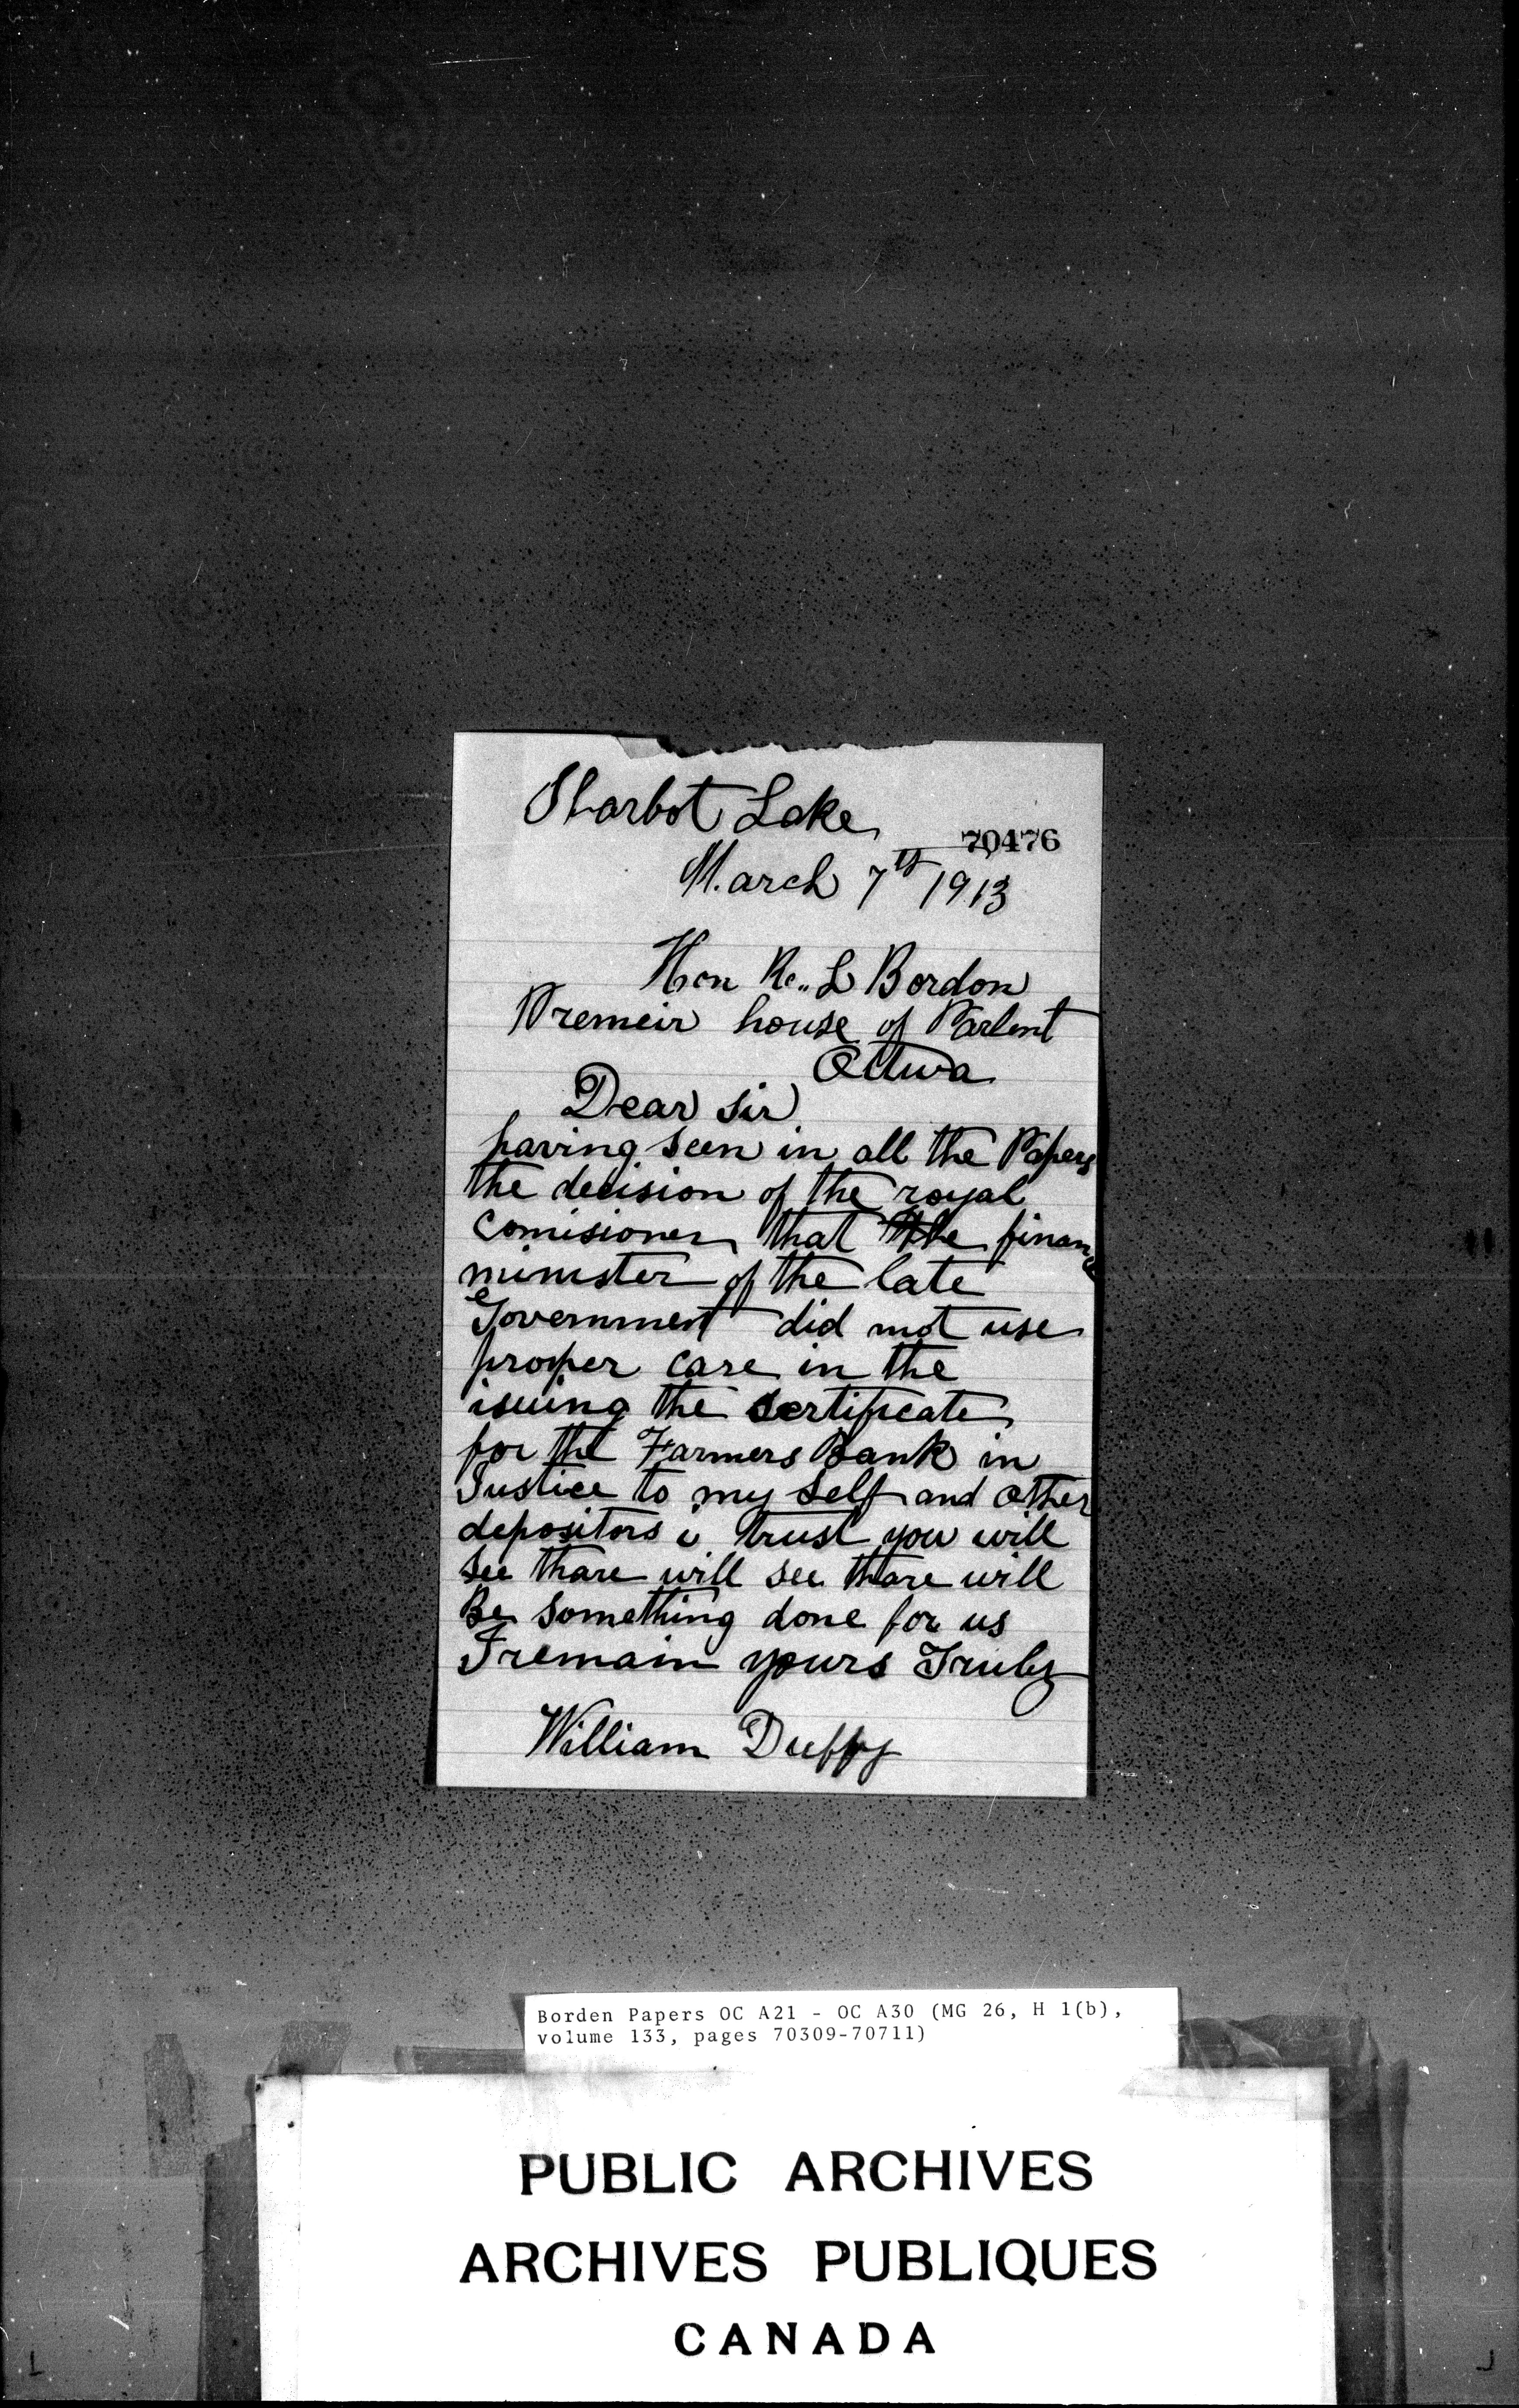 Sharbot Lake
70476
March 7th 1913
Hon R.. L Bordon
Premeir house of Parlent
Ottwa
Dear Sir
having seen in all the Papers
the decision of the royal
Comisioner that the finance
minister of the late
Government did not use
proper care in the
isuing the Sertificate
for the Farmers Bank in
Justice to my self and other
depositors i trust you will
See thare will see thare will
Be Something done for us
I remain yours Truly
William Duffy
Borden Papers OC A21 - OC A30 (MG 26, H 1(b),
volume 133, pages 70309-70711)
PUBLIC ARCHIVES
ARCHIVES PUBLIQUES
CANADA